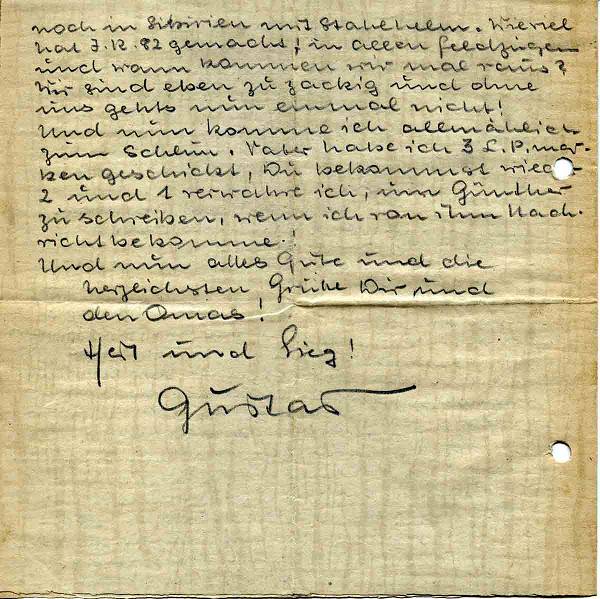 noch in Sibirien mit Stahlhelm. Wieviel
hat J.R. 82 gemacht, in allen Feldzügen
und wann kommen wir mal raus?
Wir sind eben zu zackig und ohne
uns gehts nun einmal nicht!
Und nun komme ich allmählich
zum Schluß. Vater habe ich 3 L.P. mar-
ken geschickt, Du bekommst
2 und 1 verwahre ich, um Günther
zu schreiben, wenn ich von ihm Nach-
richt bekomme.!
Und nun alles Gute und die
herzlichsten Grüße Dir und
den Omas!
Heil und Sieg!
Gustav